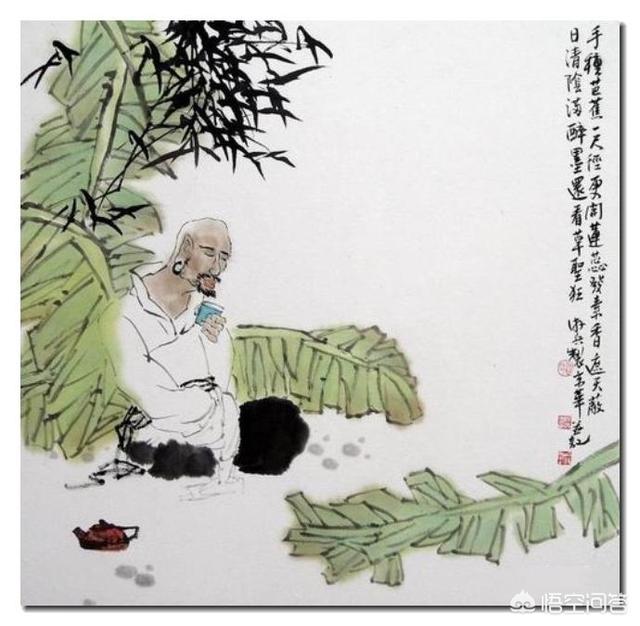 手種芭蕉一天徑更闻蓮蕊發素香遮天蔽
日清陰滿醉墨還看草聖狂 製京華
悟空问答